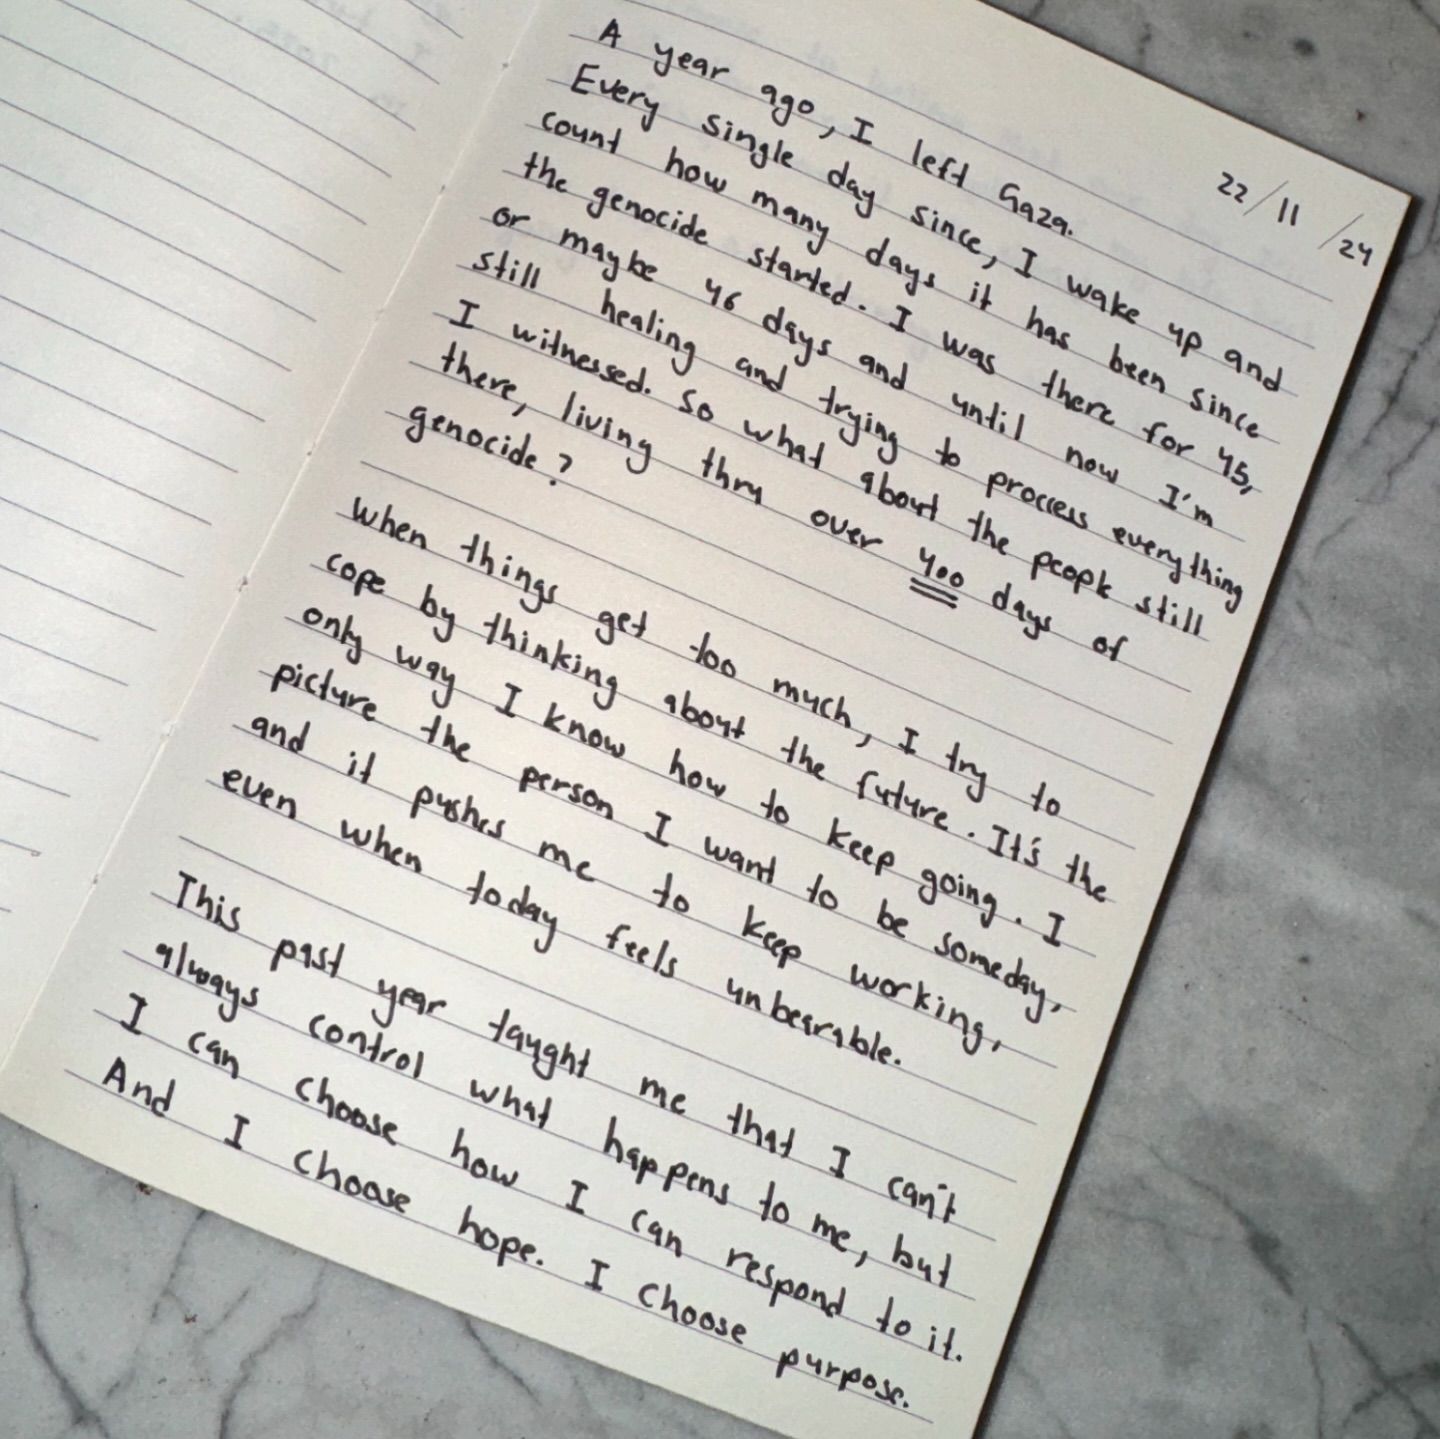 22/11/24
A year ago, I left Gaza.
Every single day since, I wake up and
count how many days it has been since
the genocide started. I was there for 45,
or maybe 46 days and until now I'm
still healing and trying to proccess everything
I witnessed. So what about the people still
there, living thru over 400 days of
genocide?
When things get too much, I try to
cope by thinking about the future. It's the
only way I know how to keep going. I
picture the person I want to be someday,
and it pushes me to keep working,
even when today feels unbearable.
This past year taught me that I can't
always control what happens to me, but
I can choose how I can respond to it.
And I choose hope. I choose purpose.